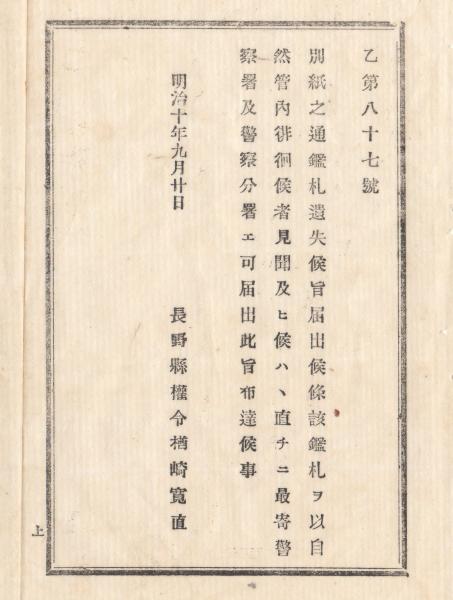 乙第八十七號
別紙之通鑑札遺失候旨届出候條該鑑札ヲ以自
然管内徘徊候者見聞及ヒ候ハヽ直チニ最寄警
察署及警察分署エ可届出此旨布達候事
明治十年九月廿日
長野縣權令楢崎寛直
上